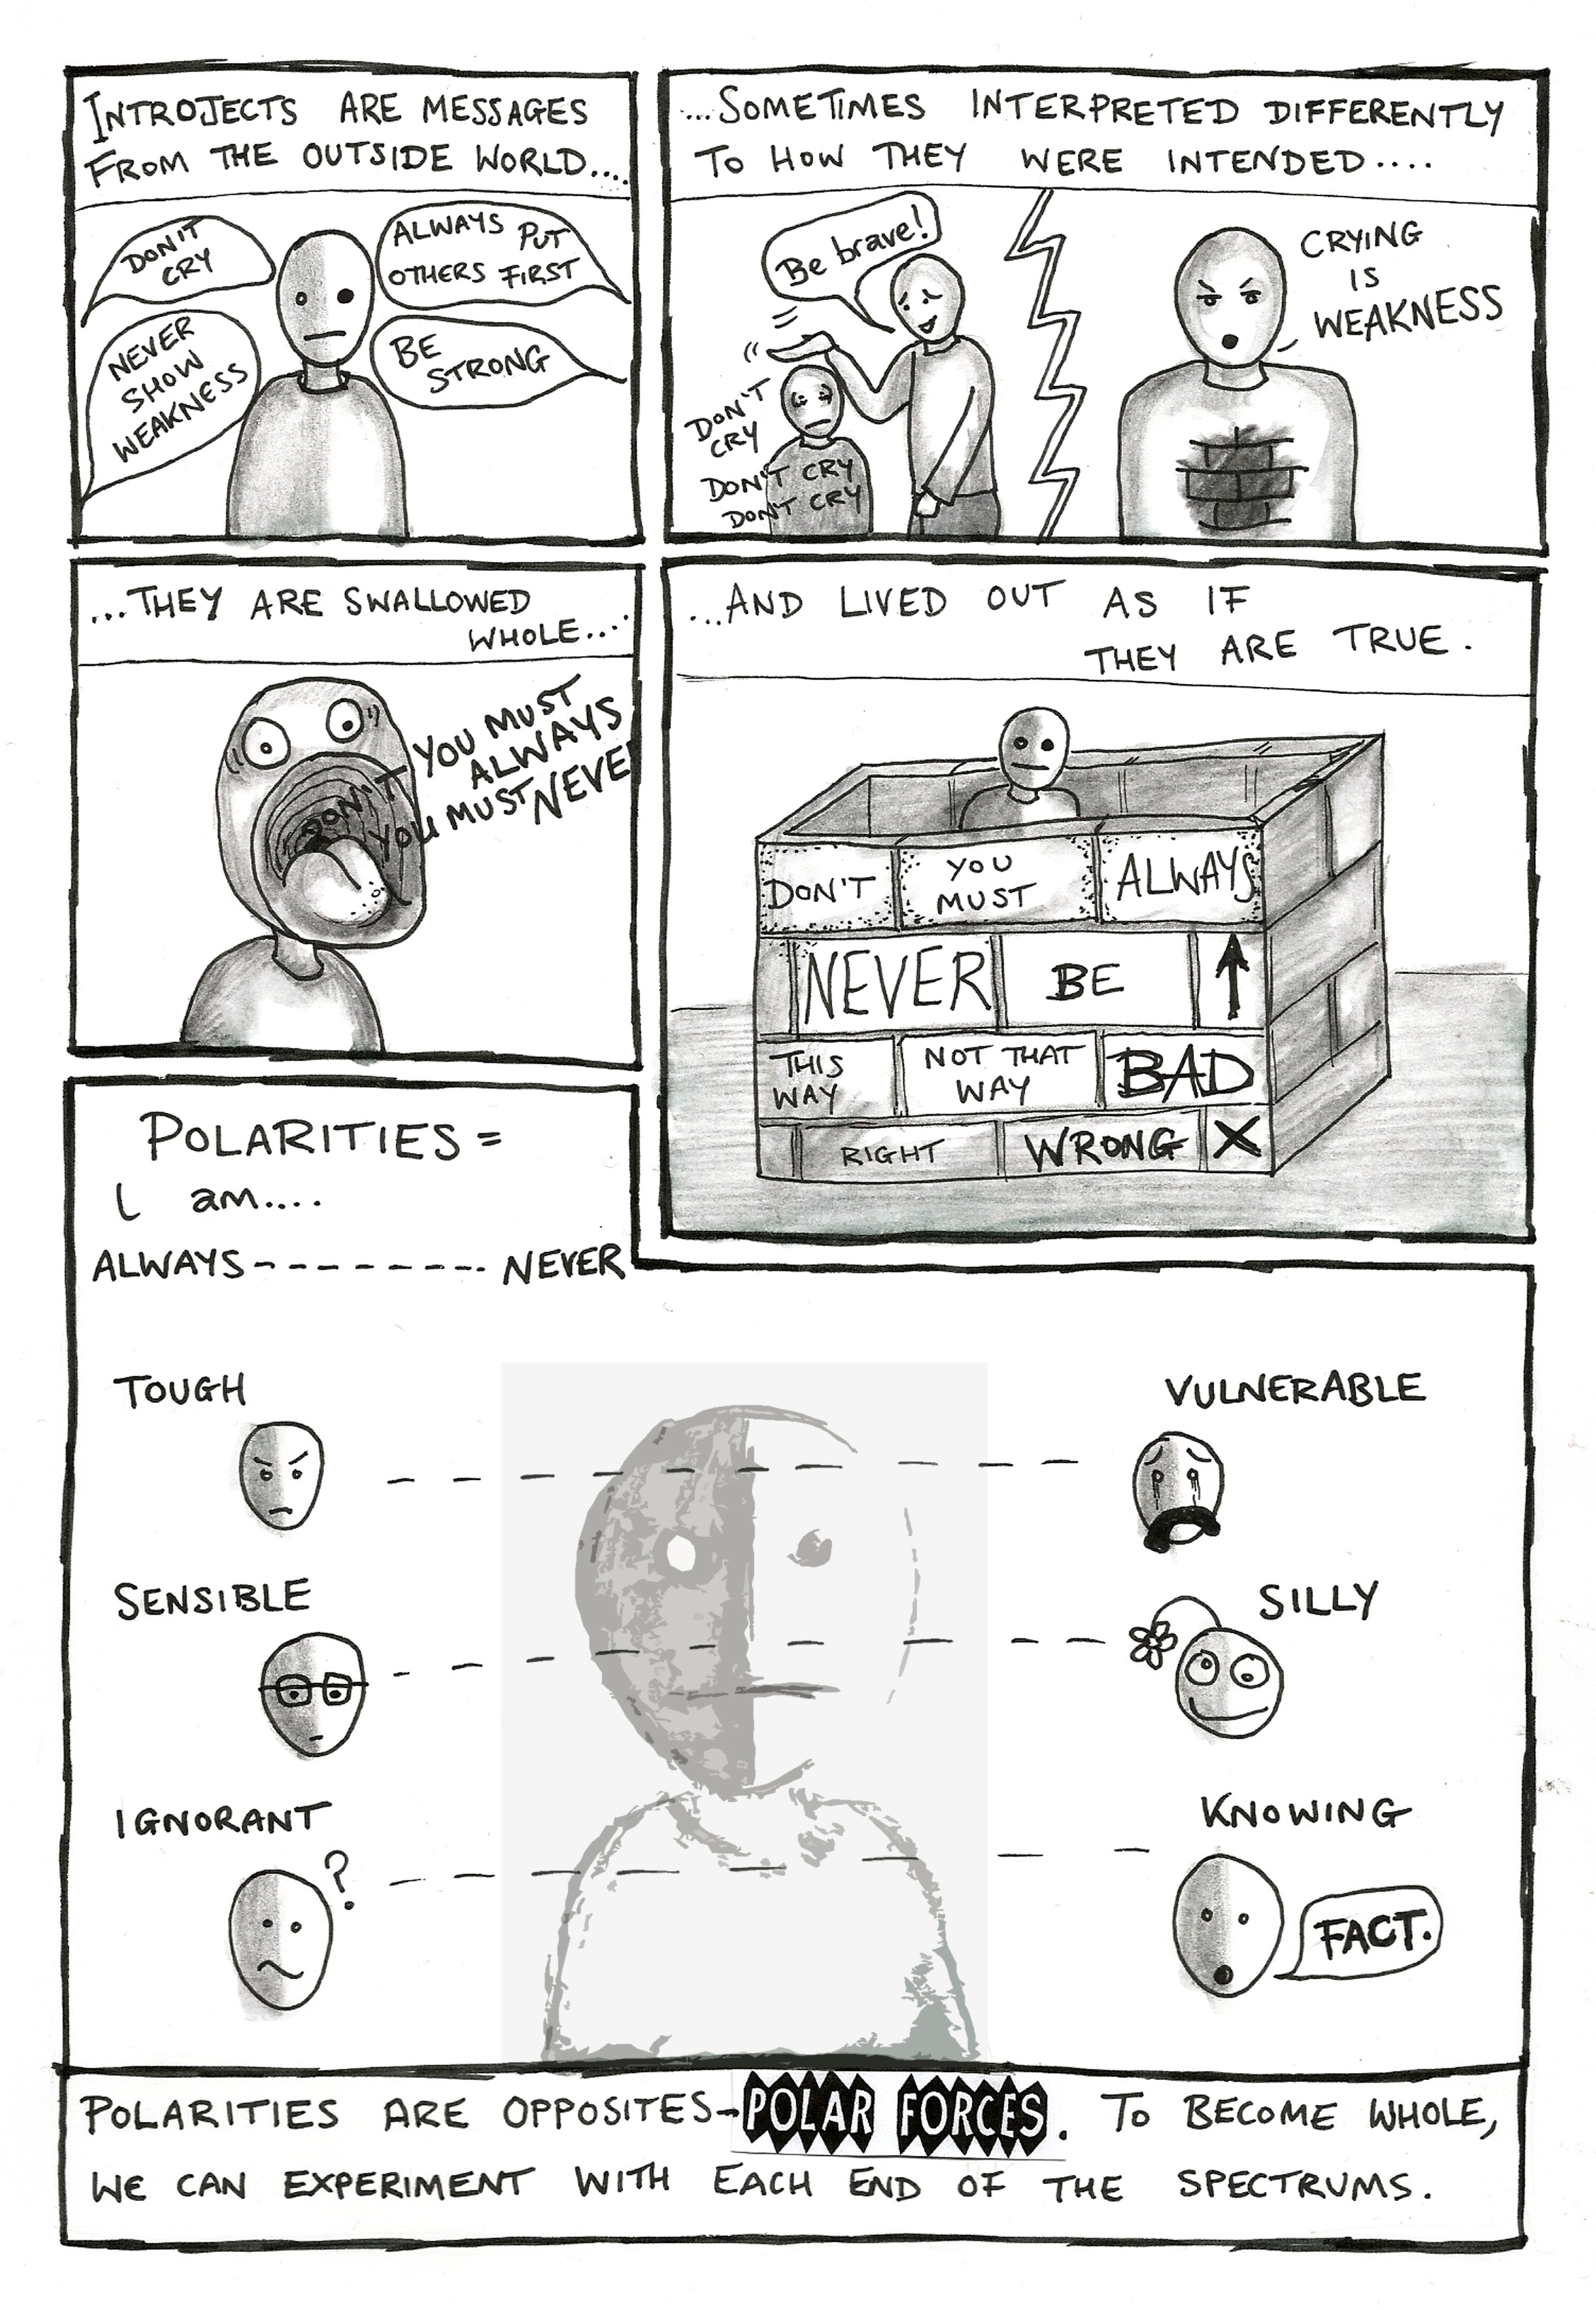 INTROJECTS ARE MESSAGES
FROM THE OUTSIDE WORLD....
DON'T
CRY
ALWAYS PUT
OTHERS FIRST
NEVER
SHOW
WEAKNESS
BE
STRONG
...SOMETIMES INTERPRETED DIFFERENTLY
TO HOW THEY WERE INTENDED....
Be brave!
DON'T
CRY
DON'T CRY
DON'T CRY
CRYING
IS
WEAKNESS
...THEY ARE SWALLOWED
WHOLE....
YOU MUST
ALWAYS
DON'T
YOU MUST NEVER
...AND LIVED OUT AS IF
THEY ARE TRUE.
DON'T
YOU
MUST
ALWAYS
NEVER
BE
THIS
WAY
NOT THAT
WAY
BAD
RIGHT
WRONG
X
POLARITIES =
I am....
ALWAYS-------- NEVER
TOUGH
VULNERABLE
SENSIBLE
SILLY
IGNORANT
KNOWING
?
FACT.
POLARITIES ARE OPPOSITES-POLAR FORCES. TO BECOME WHOLE,
WE CAN EXPERIMENT WITH EACH END OF THE SPECTRUMS.